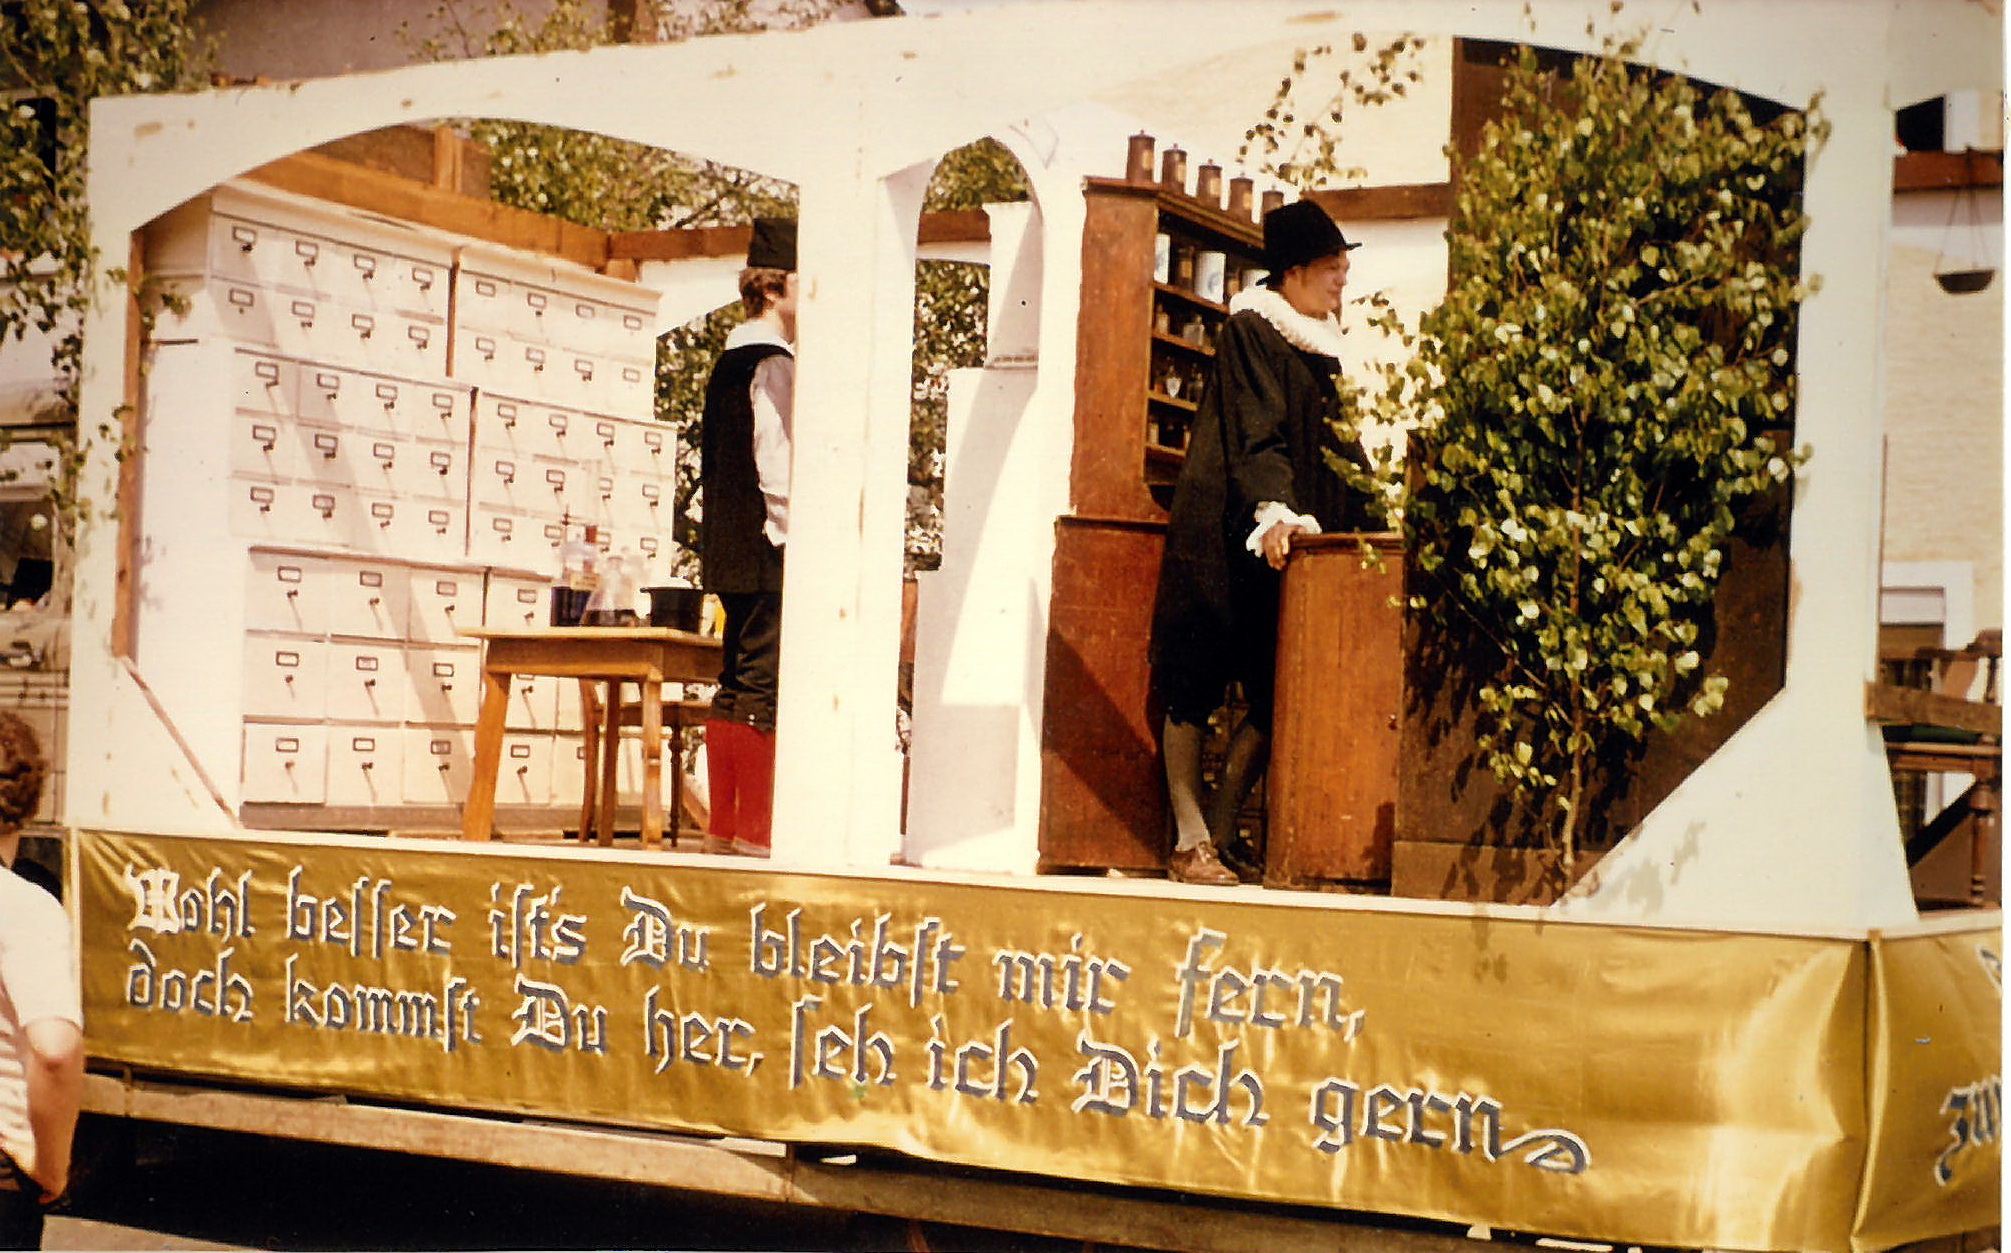 Wohl besser ist's Du bleibst mir fern,
doch kommst Du her, seh ich Dich gern